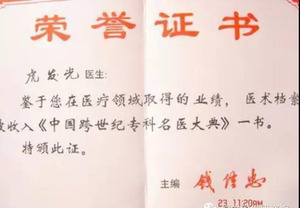 荣誉证书
虎发光医生:
鉴于您在医疗领域取得的业绩,医术档案
收入《中国跨世纪专科名医大典》一书。
特颁此证。
主编 钱信忠
23 11:20AM